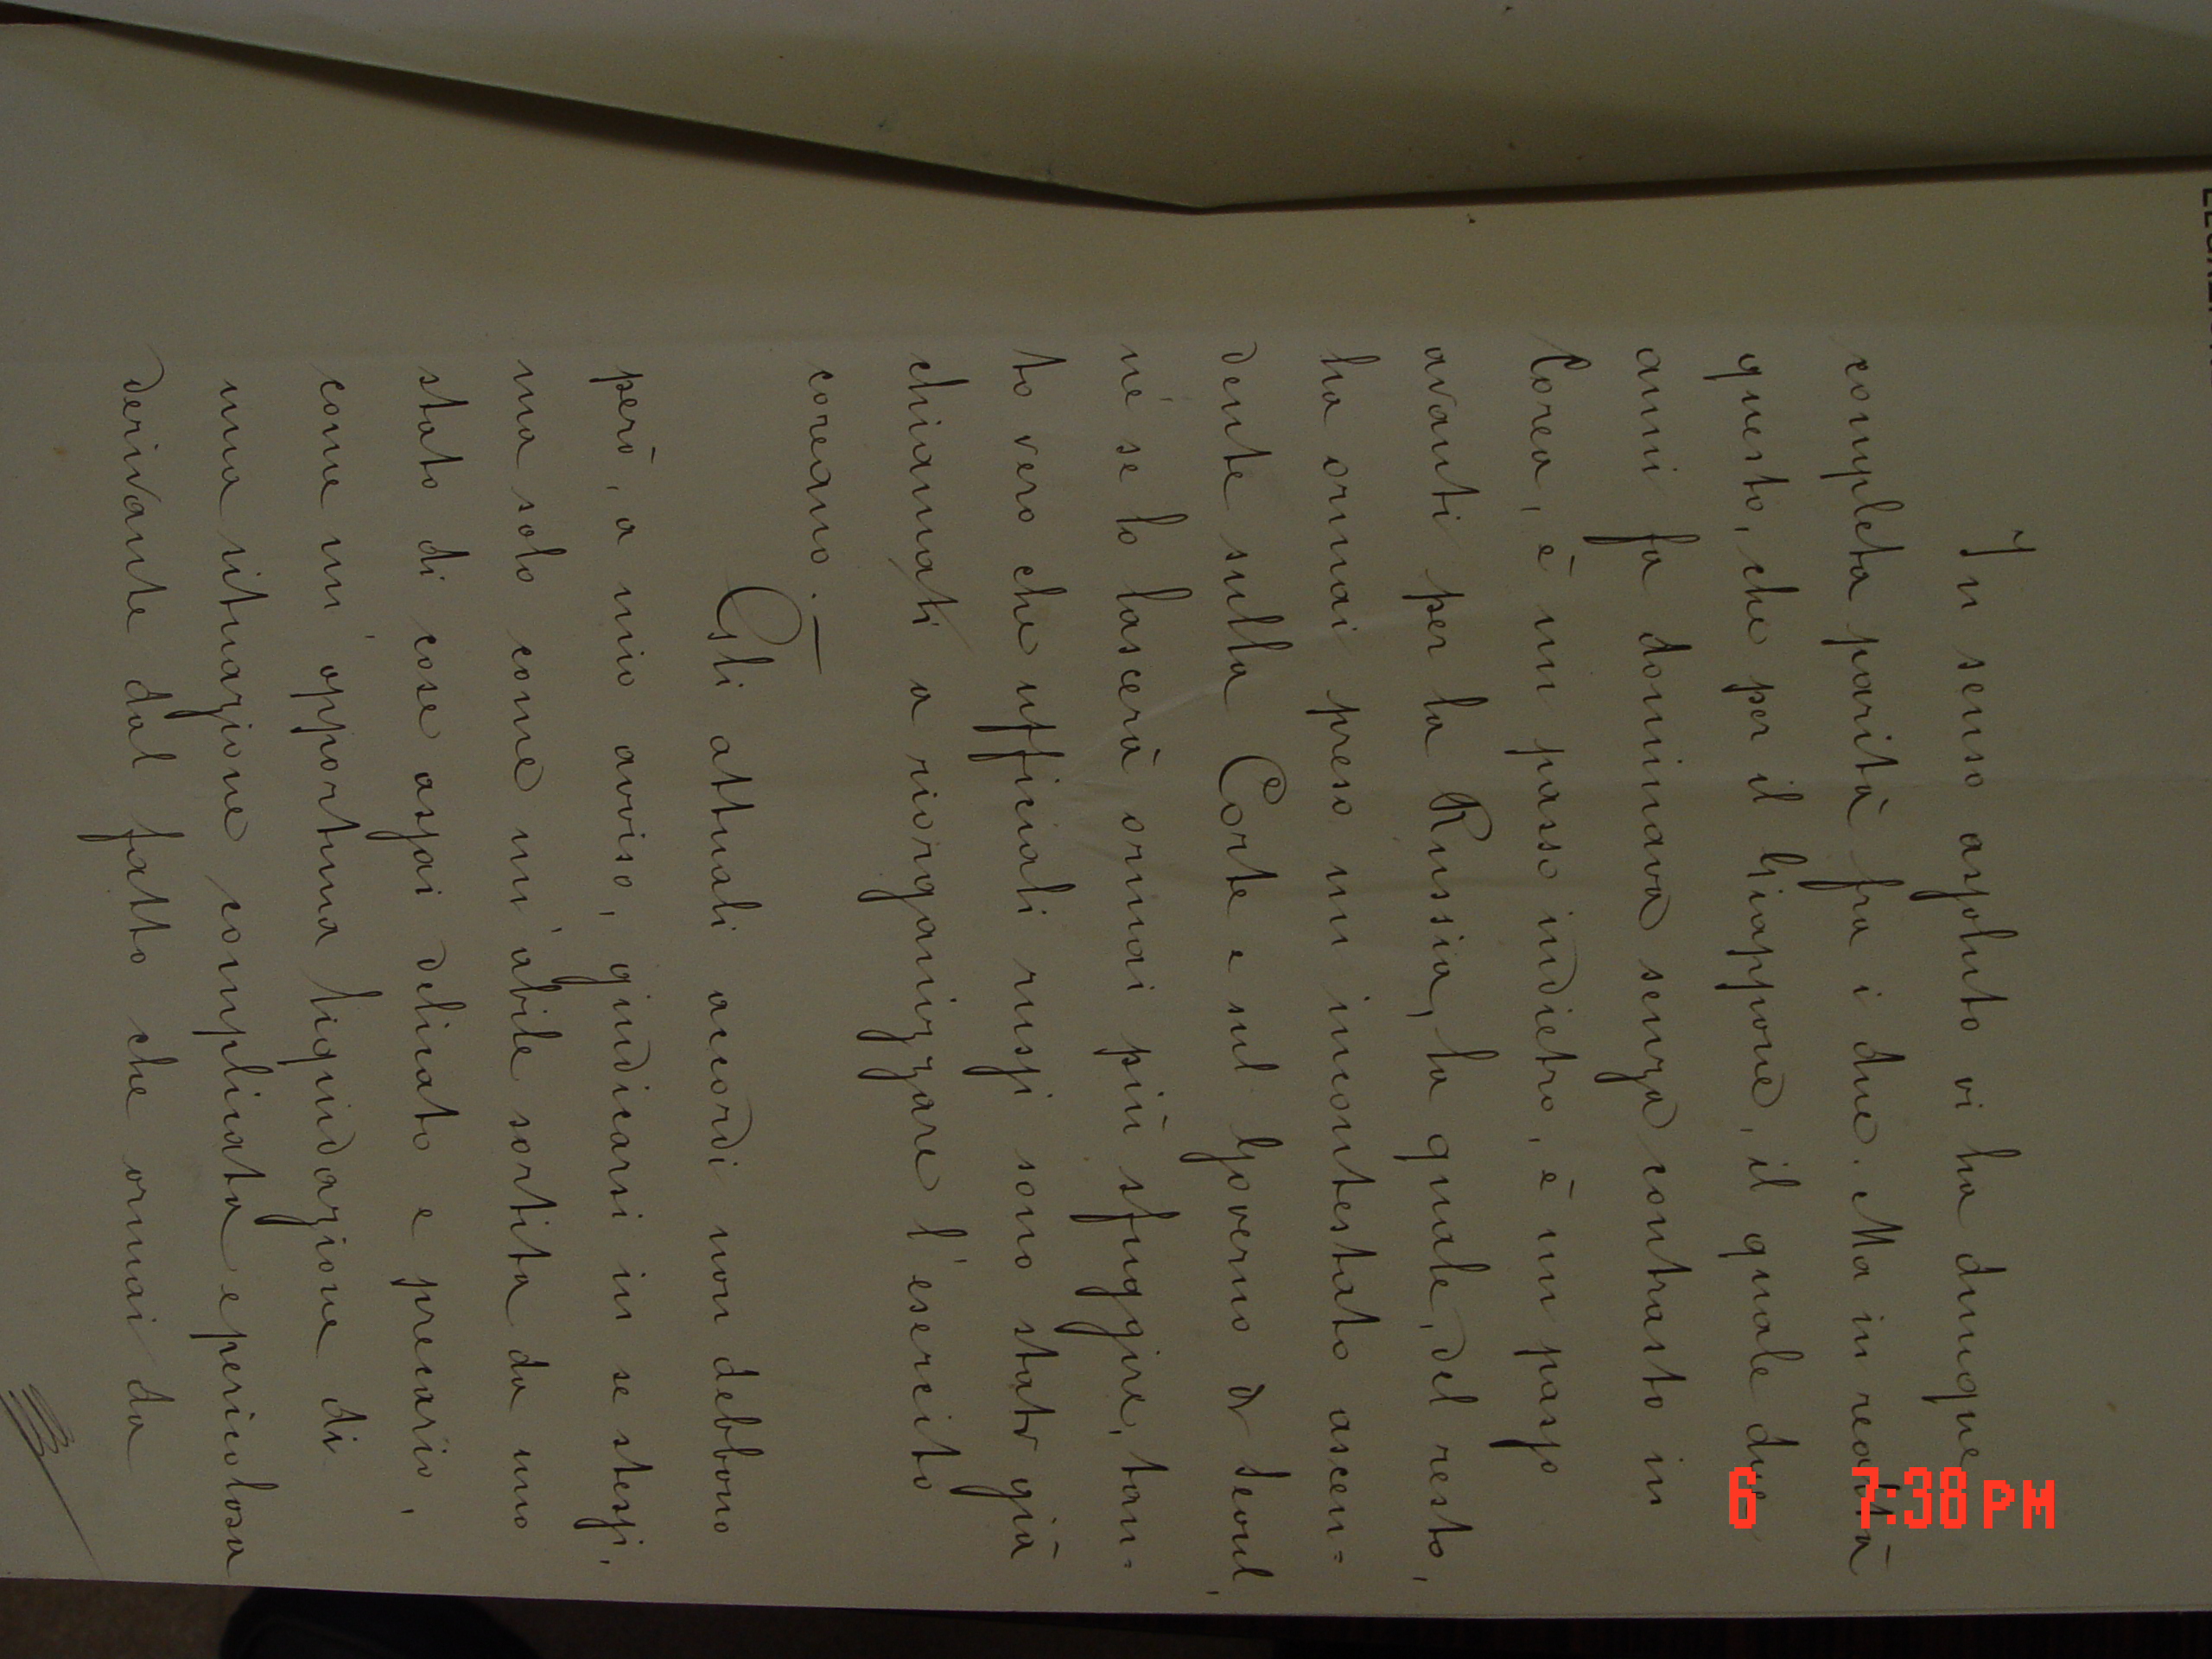 In senso assoluto vi ha dunque
completa parità fra i due. Ma in realtà
questo, che per il Giappone, il quale due
anni fa dominava senza contrasto in
Corea, è un passo indietro, è un passo
avanti per la Russia, la quale, del resto,
ha ormai preso un incontestato ascen=
dente sulla Corte e sul Governo di Seoul,
né se lo lascerà ormai più sfuggire, tan=
to vero che ufficiali russi sono stati già
chiamati a riorganizzare l'esercito
coreano. —
Gli attuali accordi non debbono
però, a mio avviso, giudicarsi in se stessi,
ma solo come un'abile sortita da uno
stato di cose assai delicato e precario,
come un'opportuna liquidazione di
una situazione complicata e pericolosa
derivante dal fatto che ormai da
6 7:38 PM